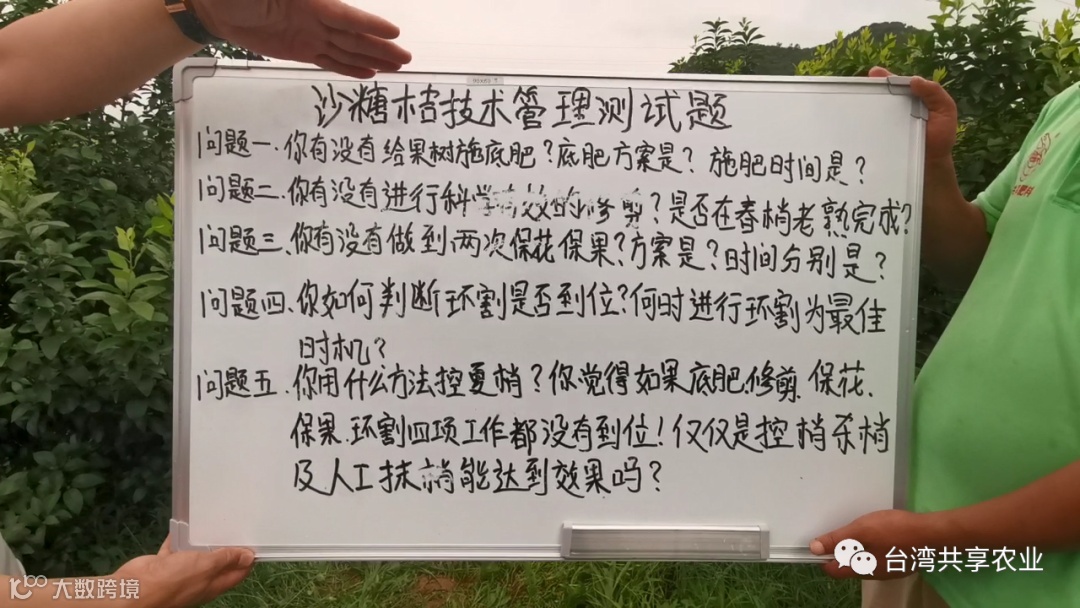 沙糖桔技术管理测试题
问题一.你有没有给果树施底肥？底肥方案是？施肥时间是？
问题二.你有没有进行科学有效的修剪？是否在春梢老熟完成？
问题三、你有没有做到两次保花保果？方案是？时间分别是？
问题四、你如何判断环割是否到位？何时进行环割为最佳
时机？
问题五.你用什么方法控夏梢？你觉得如果底肥.修剪.保花、
保果.环割四项工作都没有到位！仅仅是控梢杀梢
及人工抹梢能达到效果吗？
台湾共享农业
大数跨境